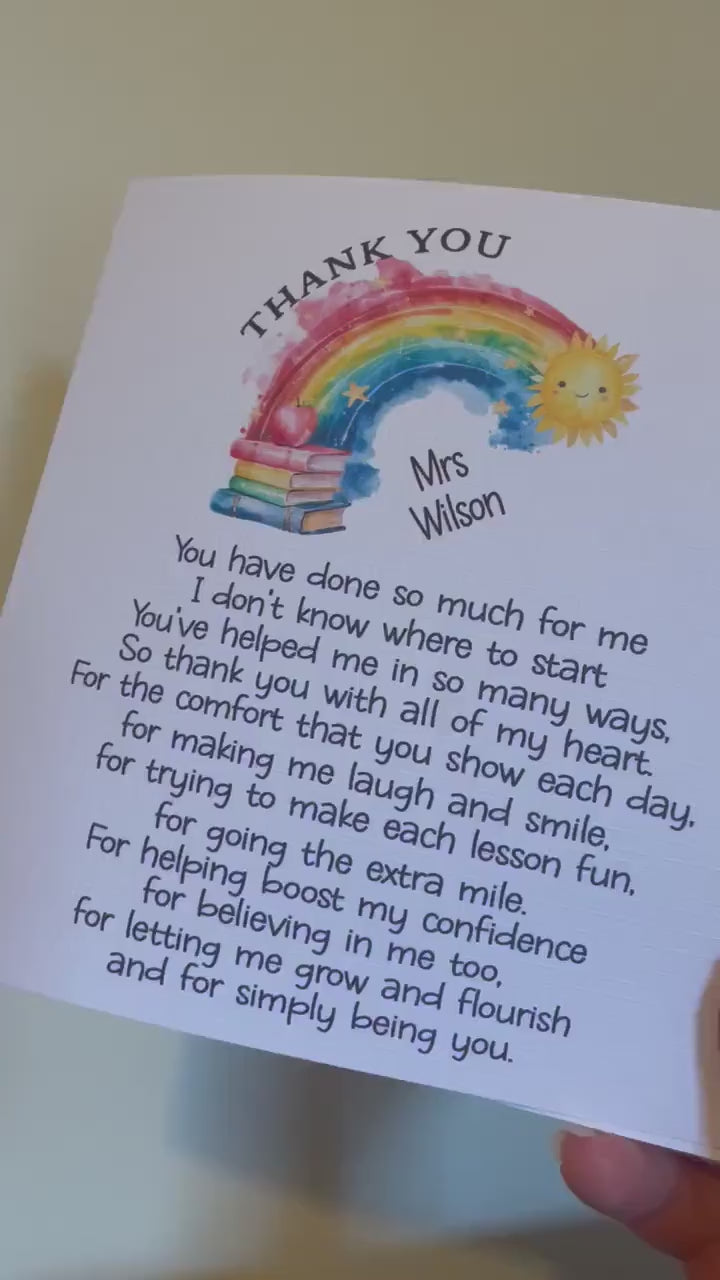 THANK YOU
Mrs
Wilson
You have done so much for me
I don't know where to start
You've helped me in so many ways,
So thank you with all of my heart.
For the comfort that you show each day,
for making me laugh and smile,
for trying to make each lesson fun,
for going the extra mile.
For helping boost my confidence
for believing in me too,
for letting me grow and flourish
and for simply being you.